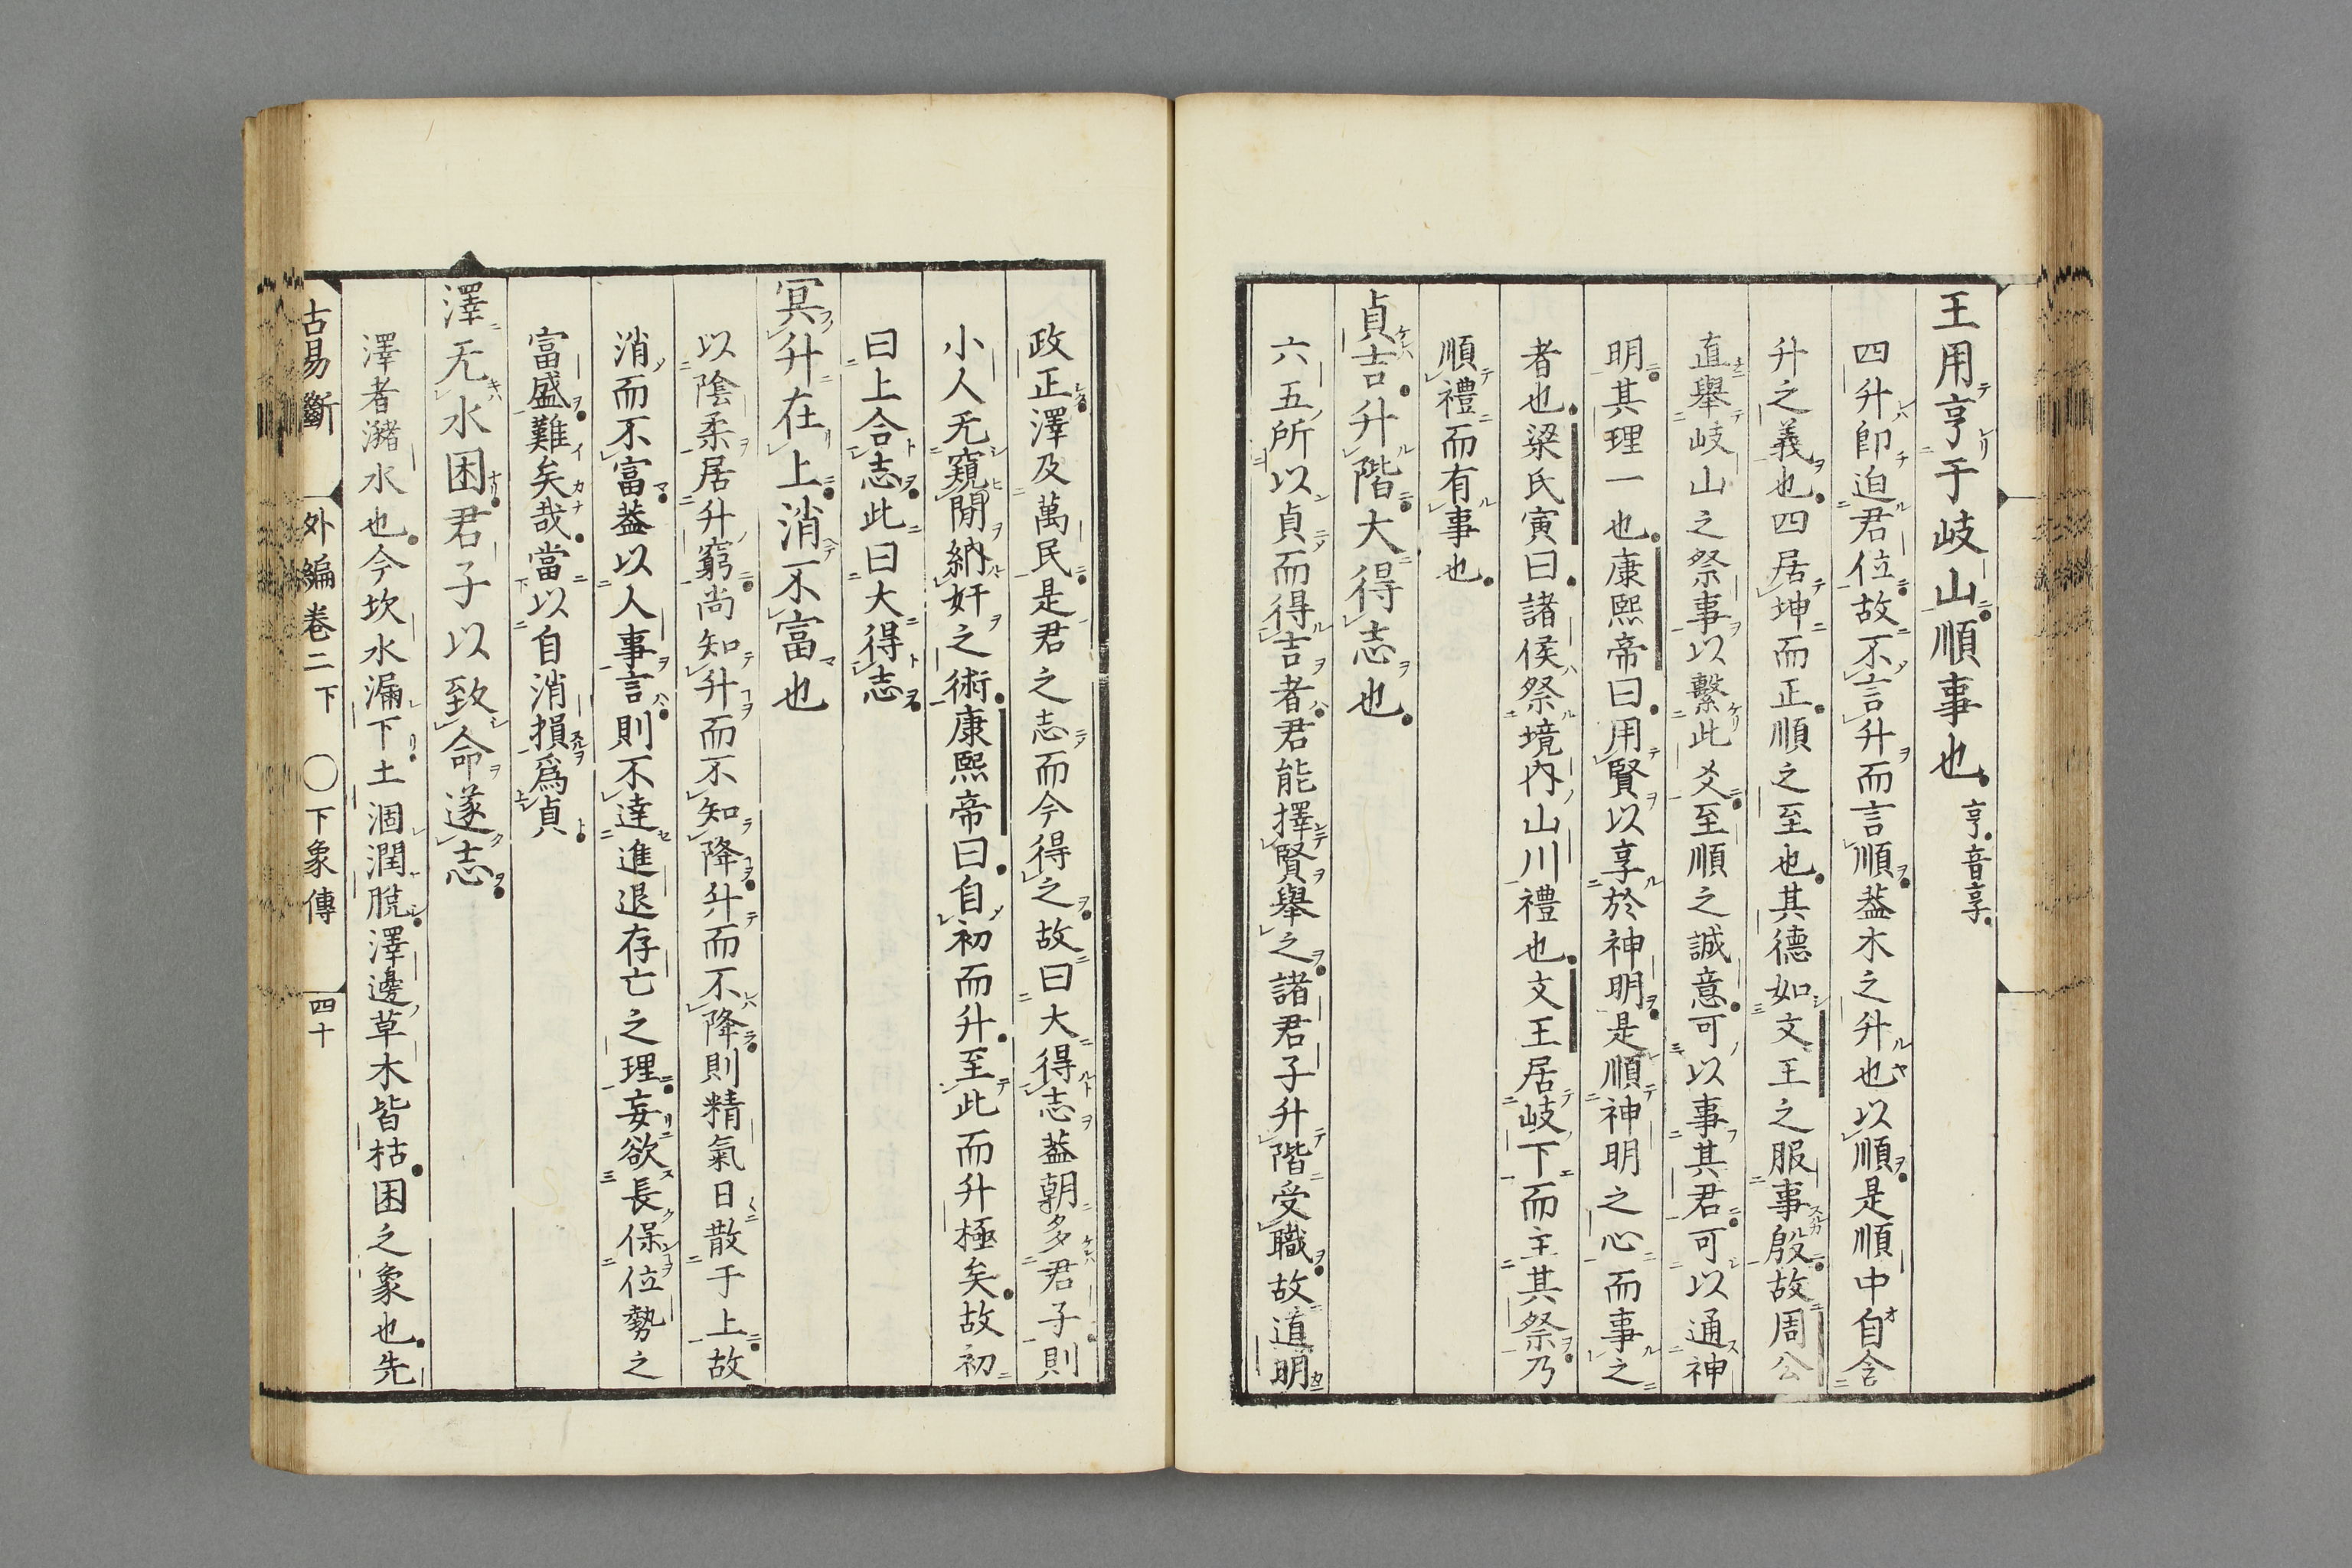 王用亨于岐山順事也。亨。音享。
四升卽迫君位故不言升而言順葢木之升也以順是順中自含
升之義也。四居坤而正順之至也。其德如文王之服事殷故周公
直舉岐山之祭事以繫此爻至順之誠意。可以事其君可以通神
明其理一也。康熙帝曰。用賢以享於神明是順神明之心而事之
者也。梁氏寅曰。諸侯祭境內山川禮也。文王居岐下而主其祭乃
順禮而有事也。
貞吉。升階大得志也。
六五所以貞而得吉者君能擇賢舉之諸君子升階受職故道明
政正澤及萬民是君之志而今得之故曰大得志葢朝多君子則
小人无窺閒納奸之術。康熙帝曰。自初而升。至此而升極矣。故初
曰上合志此曰大得志
冥升在上消不富也
以陰柔居升窮尚知升而不知降升而不降則精氣日散于上故
消而不富葢以人事言則不達進退存亡之理妄欲長保位勢之
富盛難矣哉。當以自消損爲貞
澤无水困君子以致命遂志
澤者瀦水也。今坎水漏下土涸潤脫。澤邊草木皆枯。困之象也。先
古易斷 外編卷二下 〇下象傳 四十